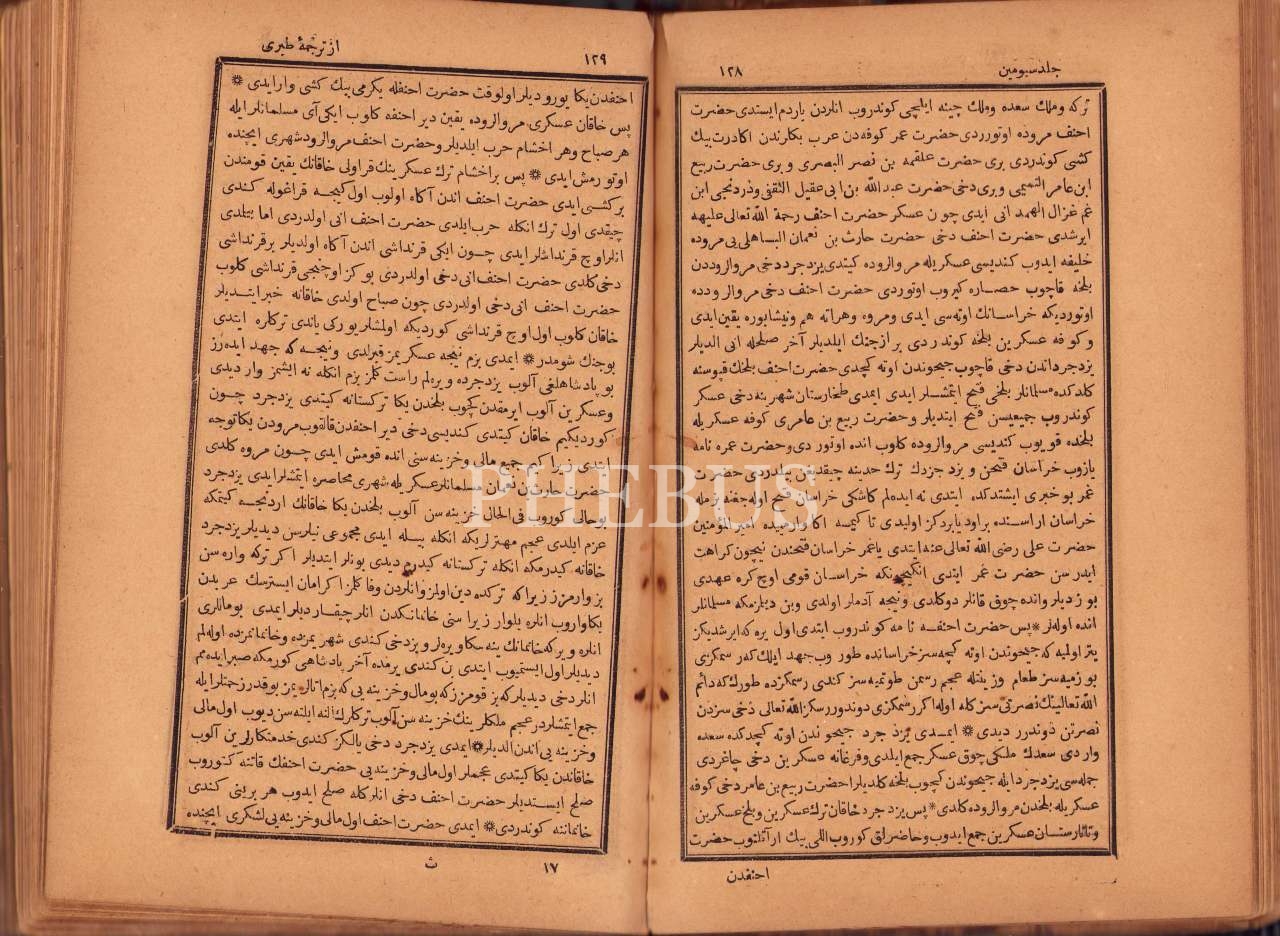 جلد سیومین
١٢٨
ترکه و ملك سعده و ملك چینه ایلچی کوندروب انلردن یاردم ایستدی حضرت
احنف مروده اوتورردی حضرت عمر کوفه دن عرب بکلرندن اکا درت بیك
کشی کوندردی بری حضرت علقمه بن نصر البصری و بری حضرت ربیع
ابن عامر التمیمی و بری دخی حضرت عبدالله بن ابی عقیل الثقفی و دردنجی ابن
غم غزال الهمد انی ایدی چون عسکر حضرت احنف رحمة الله تعالی علیهه
ایرشدی حضرت احنف دخی حضرت حارث بن نعمان الباهلی یی مروده
خلیفه ایدوب کندیسی عسکر یله مروالروده کیتدی یزدجرد دخی مروالروددن
بلخه قاچوب حصاره کیروب اوتوردی حضرت احنف دخی مروالرودده
اوتوردیکه خراسانك اوته سی ایدی ومروه وهراته هم ونیشابوره یقین ایدی
و کوفه عسکرین بلخه کوندردی بر ازجنك ایلدیلر آخر صلحله انی الدیلر
یزدجرد اندن دخی قاچوب جیحوندن اوته کچدی حضرت احنف بلخك قپوسنه
کلدکده مسلمانلر بلخی فتح ایتمشلر ایدی ایمدی طخارستان شهرینه دخی عسکر
کوندروب جمیعسن فتح ایتدیلر وحضرت ربیع بن عامری کوفه عسکریله
بلخده قویوب کندیسی مروالروده کلوب انده اوتوردی وحضرت عمره نامه
یازوب خراسان فتحن و یزدجردك ترك حدینه چیقدیغن بیلدردی حضرت
عمر بو خبری ایشتدکده ایتدی نه ایدهلم کاشکی خراسان فتح اولمیه
خراسان اراسنده براود یا بردکز اولیدی تا کیمسه اکا وارمیده امیر المؤمنین
حضرت علی رضی الله تعالی عنه ایتدی یاعمر خراسان فتحندن نیچون کراهت
ایدرسن حضرت عمر ایتدی انکیچونکه خراسان قومی اوچ کره عهدی
بوزدیلر وانده چوق قانلر دوکلدی ونیجه آدملر اولدی وبن دیلرمکه مسلمانلر
انده اوله لر * پس حضرت احنفه نامه کوندروب ایتدی اول یره که ایرشدیکز
یتر اولمیه که جیحوندن اوته کچه سز خراسانده طوروب جهد ایلك که رسمکزی
بوزمیه سز طعام وزینتله عجم رسمن طوتمیه سز کندی رسمکزده طورك که دائم
الله تعالینك نصرتی سزکله اوله اکر رسمکزی دوندوررسکز الله تعالی دخی سزدن
نصرتن دوندر دیدی * ایمدی یزدجرد جیحوندن اوته کچدکده سعده
واردی سعدك ملکی چوق عسکر جمع ایلدی وفرغانه عسکرین دخی چاغردی
جمله سی یزدجرد ایله جیحوندن کچوب بلخه کلدیلر حضرت ربیع بن عامر دخی کوفه
عسکریله بلخدن مروالروده کلدی * پس یزدجرد خاقان ترك عسکرین و بلخ عسکرین
وتاتارستان عسکرین جمع ایدوب وحاضرلق کوروب اللی بیك ار آتلنوب حضرت
احنفدن
از ترجمهٔ طبری
١٢٩
احنفدن یکا یورودیلر اولوقت حضرت احنفله یکرمی بیك کشی وار ایدی *
پس خاقان عسکری مروالروده یقین دیر احنفه کلوب ایکی آی مسلمانلر ایله
هر صباح وهر اخشام حرب ایلدیلر وحضرت احنف مروالرود شهری ایچنده
اوتورمش ایدی * پس براخشام ترك عسکرینك قراولی خاقانك یقین قومندن
بر کشی ایدی حضرت احنف اندن آکاه اولوب اول کیجه قراغوله کندی
چیقدی اول ترك انکله حرب ایلدی حضرت احنف انی اولدردی اما بتلدی
انلر اوچ قرنداشلر ایدی چون ایکی قرنداشی اندن آکاه اولدیلر بر قرنداشی
دخی کلدی حضرت احنف انی دخی اولدردی بو کز اوچنجی قرنداشی کلوب
حضرت احنف انی دخی اولدردی چون صباح اولدی خاقانه خبر ایتدیلر
خاقان کلوب اول اوچ قرنداشی کوردیکه اولمشلر یورکی یاندی ترکلره ایتدی
بو جنك شومدر * ایمدی بزم نیجه عسکریمز قیرلدی ونیجه که جهد ایده رز
بو پادشاهلغی آلوب یزدجرده ویره لم راست کلمز بزم انکله نه ایشمز وار دیدی
وعسکرین آلوب ایرمقدن کچوب بلخدن یکا ترکستانه کیتدی یزدجرد چون
کوردیکیم خاقان کیتدی کندیسی دخی دیر احنفدن قالقوب مرودن یکا توجه
ایتدی زیرا که جمیع مالی وخزینه سنی انده قومش ایدی چون مروه کلدی
حضرت حارث بن نعمان مسلمانلر عسکریله شهری محاصره ایتمشلر ایدی یزدجرد
بو حالی کوروب فی الحال خزینه سن آلوب بلخدن یکا خاقانك اردنجه کیتمکه
عزم ایلدی عجم مهترلریکه انکله بیله ایدی مجموعی نیلرسن دیدیلر یزدجرد
خاقانه کیدرمکه انکله ترکستانه کیدرم دیدی بونلر ایتدیلر اکر ترکه واره سن
بز وارمزز زیرا که ترکده دین اولمز وانلردن وفا کلمز اکر امان ایسترسك عربدن
یکا واروب انلره یلوار زیرا سنی خانمانکدن انلر چیقاردیلر ایمدی بو ماللری
انلره ویر که خانمانك ینه سکا ویره لر و بز دخی کندی شهریمزده وخانمانمزده اوله لم
دیدیلر اول ایستمیوب ایتدی بن کندی یرمده آخر پادشاهی کورمکه صبر ایده مم
انلر دخی دیدیلر که بز قومزز که بو مال وخزینه یی که بزم اتالریمز بو قدر زحمتلر ایله
جمع ایتمشلردر عجم ملکلرینك خزینه سن آلوب ترکلرك النه ایلته سن دیوب اول مالی
وخزینه یی اندن الدیلر * ایمدی یزدجرد دخی یالکز کندی خدمتکارلرین آلوب
خاقاندن یکا کیتدی عجملر اول مالی وخزینه یی حضرت احنفك قاتنه کتوروب
صلح ایستدیلر حضرت احنف دخی انلرکله صلح ایدوب هر برینی کندی
خانماننه کوندردی * ایمدی حضرت احنف اول مالی وخزینه یی لشکری ایچنده
١٧
ث
PHEBUS